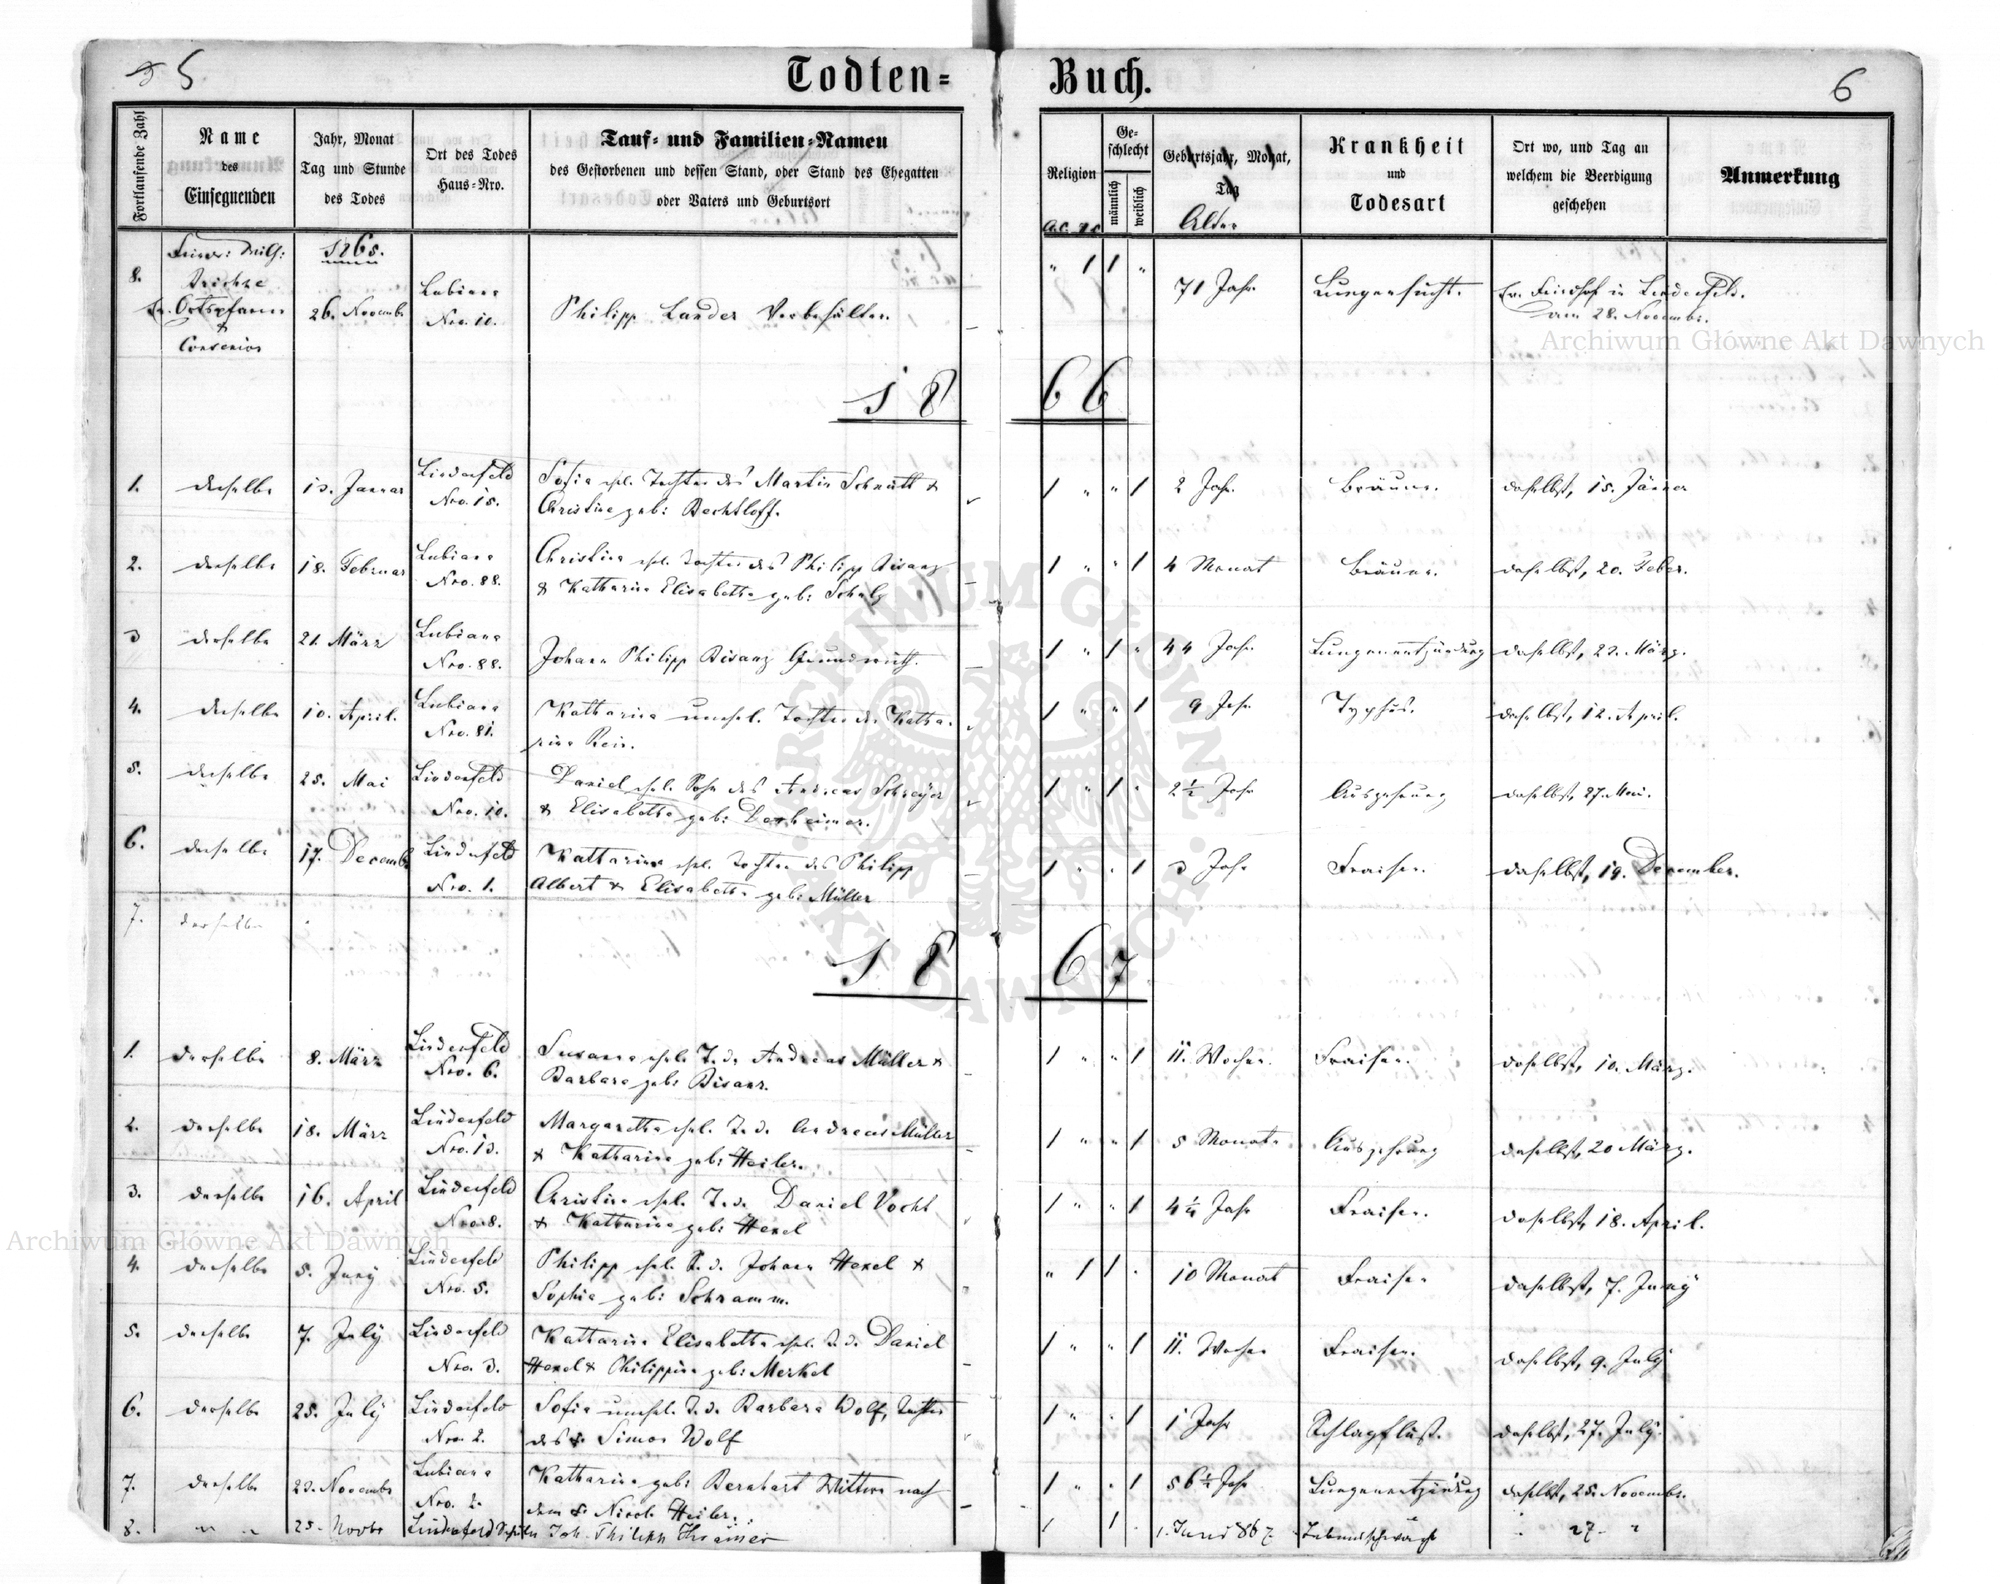 5
Todten-Buch.
6
Fortlaufende Zahl
Name
des
Einsegnenden
Jahr, Monat
Tag und Stunde
des Todes
Ort des Todes
Haus-Nro.
Tauf- und Familien-Namen
des Gestorbenen und dessen Stand, oder Stand des Ehegatten
oder Vaters und Geburtsort
Religion
A.C. H.C.
Ge-
schlecht
männlich
weiblich
Geburtsjahr, Monat,
Tag
Alter
Krankheit
und
Todesart
Ort wo, und Tag an
welchem die Beerdigung
geschehen
Anmerkung
1865.
8.
Ev. Ortspfarrer
26. Novembr
Lubiana
Nro. 10.
Philipp Lander
" 1 1 "
71 Jahr
Lungensucht.
Ev. Friedhof in Lindenfeld.
am 28. Novembr.
1866
1. derselbe 13. Januar Lindenfeld
Nro. 15.
Sofia ehl. Tochter des Martin Schmitt &
Christine geb: Bechtloff.
1 " " 1 2 Jahr. Bräune. daselbst, 15. Jänner
2. derselbe 18. Februar Lubiana
Nro. 88.
Christina ehl. Tochter des Philipp Bisanz
& Katharina Elisabetha geb: Schulz
1 " " 1 4 Monat Bräune. daselbst, 20. Feber.
3 derselbe 21. März Lubiana
Nro. 88.
Johann Philipp Bisanz Grundwirth.
1 " 1 " 44 Jahr. Lungenentzündung daselbst, 23. März.
4. derselbe 10. April. Lubiana
Nro. 81.
Katharina unehl. Tochter der Katha-
rina Rein.
1 " " 1 9 Jahr Typhus. daselbst, 12. April.
5. derselbe 25. Mai Lindenfeld
Nro. 10.
Daniel ehl. Sohn des Andreas Schreyer
& Elisabetha geb: Dexheimer.
1 " 1 " 2½ Jahr Auszehrung daselbst, 27. Mai.
6. derselbe 17. Decembr Lindenfeld
Nro. 1.
Katharina ehl. Tochter des Philipp
Albert & Elisabetha geb: Müller
1 " " 1 3 Jahr Fraisen. daselbst, 19. December.
7. derselbe
1867
1. derselbe 8. März Lindenfeld
Nro. 6.
Susanna ehl. T. d. Andreas Müller &
Barbara geb: Bisanz.
1 " " 1 11. Wochen. Fraisen. daselbst, 10. März.
2. derselbe 18. März Lindenfeld
Nro. 13.
Margaretha ehl. T. d. Andreas Müller
& Katharina geb: Heiler.
1 " " 1 5 Monate Auszehrung daselbst, 20 März.
3. derselbe 16. April Lindenfeld
Nro. 8.
Christina ehl. T. d. Daniel Vocht
& Katharina geb: Hexel
1 " " 1 4¼ Jahr Fraisen. daselbst, 18. April.
4. derselbe 5. Juny Lindenfeld
Nro. 5.
Philipp ehl. S. d. Johann Hexel &
Sophia geb: Schramm.
" 1 1 . 10 Monat Fraisen daselbst, 7. Juny
5. derselbe 7. July Lindenfeld
Nro. 3.
Katharina Elisabetha ehl. T. d. Daniel
Hexel & Philippina geb: Merkel
1 " " 1 11. Wochen Fraisen. daselbst, 9. July
6. derselbe 25. July Lindenfeld
Nro. 2.
Sofia unehl. T. d. Barbara Wolf, Tochter
des † Simon Wolf
1 " . 1 1 Jahr Schlagfluß. daselbst, 27. July.
7. derselbe 23. Novembr Lubiana
Nro. 2.
Katharina geb: Bernhart Wittwe nach
dem † Nicol. Heiler.
1 " . 1 56½ Jahr Lungenentzündung daselbst, 25. Novembr.
8. " " 25. Novbr Lindenfeld Joh. Philipp Krämer
1 1 . 1. Juni 867 Lebensschwäche " 27. "
Archiwum Główne Akt Dawnych
Archiwum Główne Akt Dawnych
ARCHIWUM GŁÓWNE AKT DAWNYCH